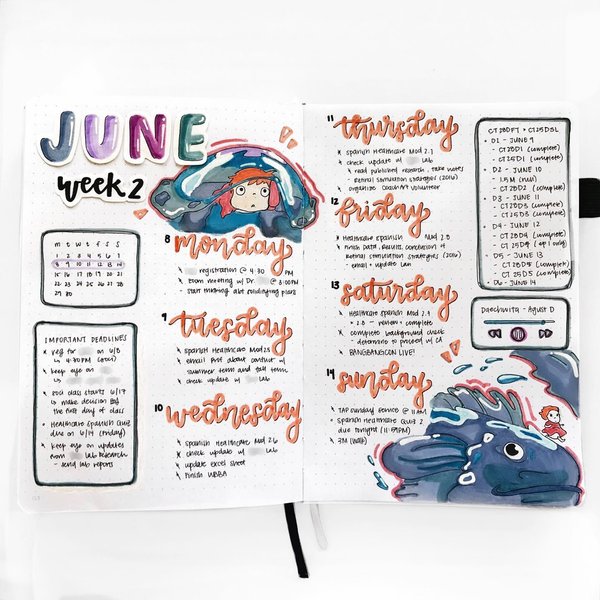 JUNE
week 2
m t w t f s s
1 2 3 4 5 6 7
8 9 10 11 12 13 14
15 16 17 18 19 20 21
22 23 24 25 26 27 28
29 30
IMPORTANT DEADLINES
* reg for on 6/8
↳ 4:30PM
* keep eye on
↳
* class starts 6/17
↳ make decision by
the first day of class
* Healthcare Spanish Quiz
due on 6/14 (Friday)
* keep eye on updates
from lab research
- send lab reports
8
monday
* registration @ 4:30 PM
* zoom meeting w/ Dr. @ 3:00PM
* start thinking abt solidifying plans
9
tuesday
* Spanish Healthcare Mod 2.5
* email about conflict w/
summer term and fall term
* check update w/ lab
10
wednesday
* Spanish Healthcare Mod 2.6
* check update w/ lab
* update excel sheet
* finish
11
thursday
* Spanish Healthcare Mod 2.7
* check update w/ lab
* read published research, take notes
- Retinal Stimulation Strategies (2016)
* organize volunteer
12
friday
* Healthcare Spanish Mod 2.8
* finish Data, Results, Conclusion of
Retinal Stimulation Strategies (2016)
* email + update lab
13
saturday
* Healthcare Spanish Mod 2.9
* 2.8 - review + complete
* complete background check
- determine to proceed w/ CA
* BANGBANGCON LIVE!
14
sunday
* TAP Sunday Service @ 11AM
* Spanish Healthcare Quiz 2
due tonight (11:59PM)
* 3M (walk)
CT28DFT + CT25DSL
* D1 - JUNE 9
- CT28D1 (complete)
- CT25D1 (complete)
* D2 - JUNE 10
- 1.5M (run)
- CT28D2 (complete)
* D3 - JUNE 11
- CT28D3 (complete)
- CT25D3 (complete)
* D4 - JUNE 12
- CT28D4 (complete)
- CT25D4
* D5 - JUNE 13
- CT28D5 (complete)
- CT25D5 (complete)
* D6 - JUNE 14
Daechwita - Agust D